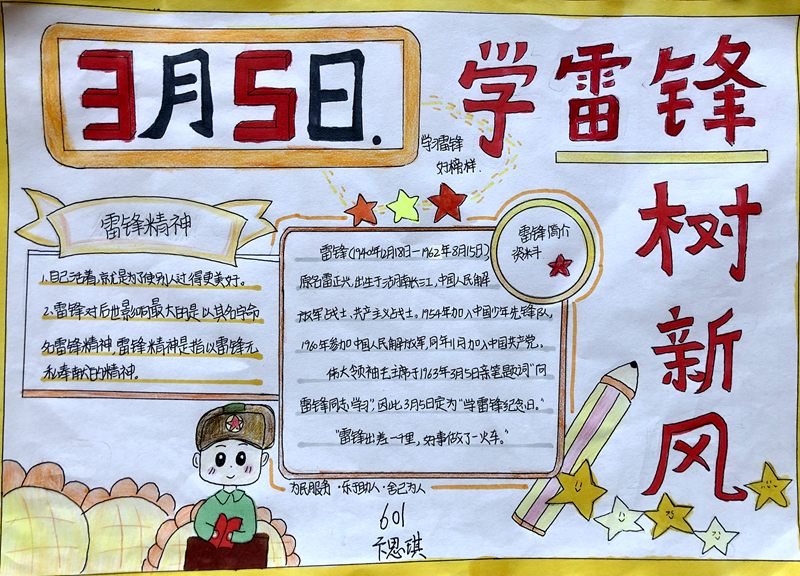 3月5日.
学雷锋
树新风
学习雷锋
好榜样.
雷锋精神
1.自己活着,就是为了使别人过得更美好。
2、雷锋对后也影响最大的是以其名字命
名雷锋精神,雷锋精神是指以雷锋无
私奉献的精神。
雷锋简介
资料
雷锋(1940年12月18日—1962年8月15日)
原名雷正兴,出生于湖南长江,中国人民解
放军战士、共产主义战士。1954年加入中国少年先锋队,
1960年参加中国人民解放军,同年11月加入中国共产党。
伟大领袖毛主席于1963年3月5日亲笔题词"向
雷锋同志学习",因此,3月5日定为"学雷锋纪念日。"
"雷锋出差一千里,好事做了一火车。"
为民服务·乐于助人·舍己为人
601
卞思琪